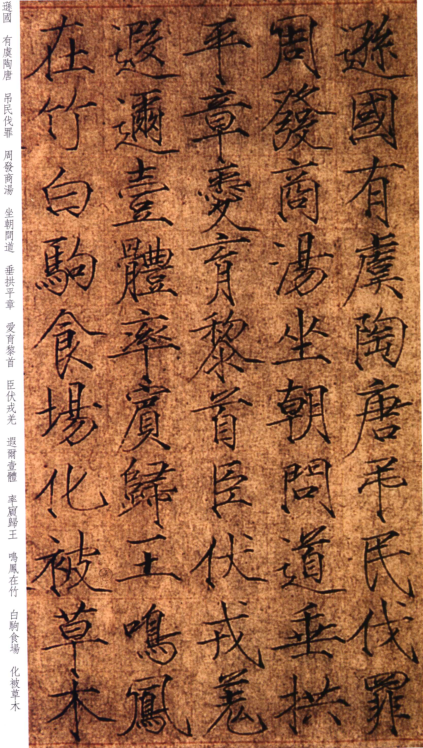 遜國有虞陶唐弔民伐罪
周發商湯坐朝問道垂拱
平章愛育黎首臣伏戎羌
遐邇壹體率賓歸王鳴鳳
在竹白駒食場化被草木
遜國 有虞陶唐 吊民伐罪 周發商湯 坐朝問道 垂拱平章 愛育黎首 臣伏戎羌 遐爾壹體 率賓歸王 鳴鳳在竹 白駒食場 化被草木